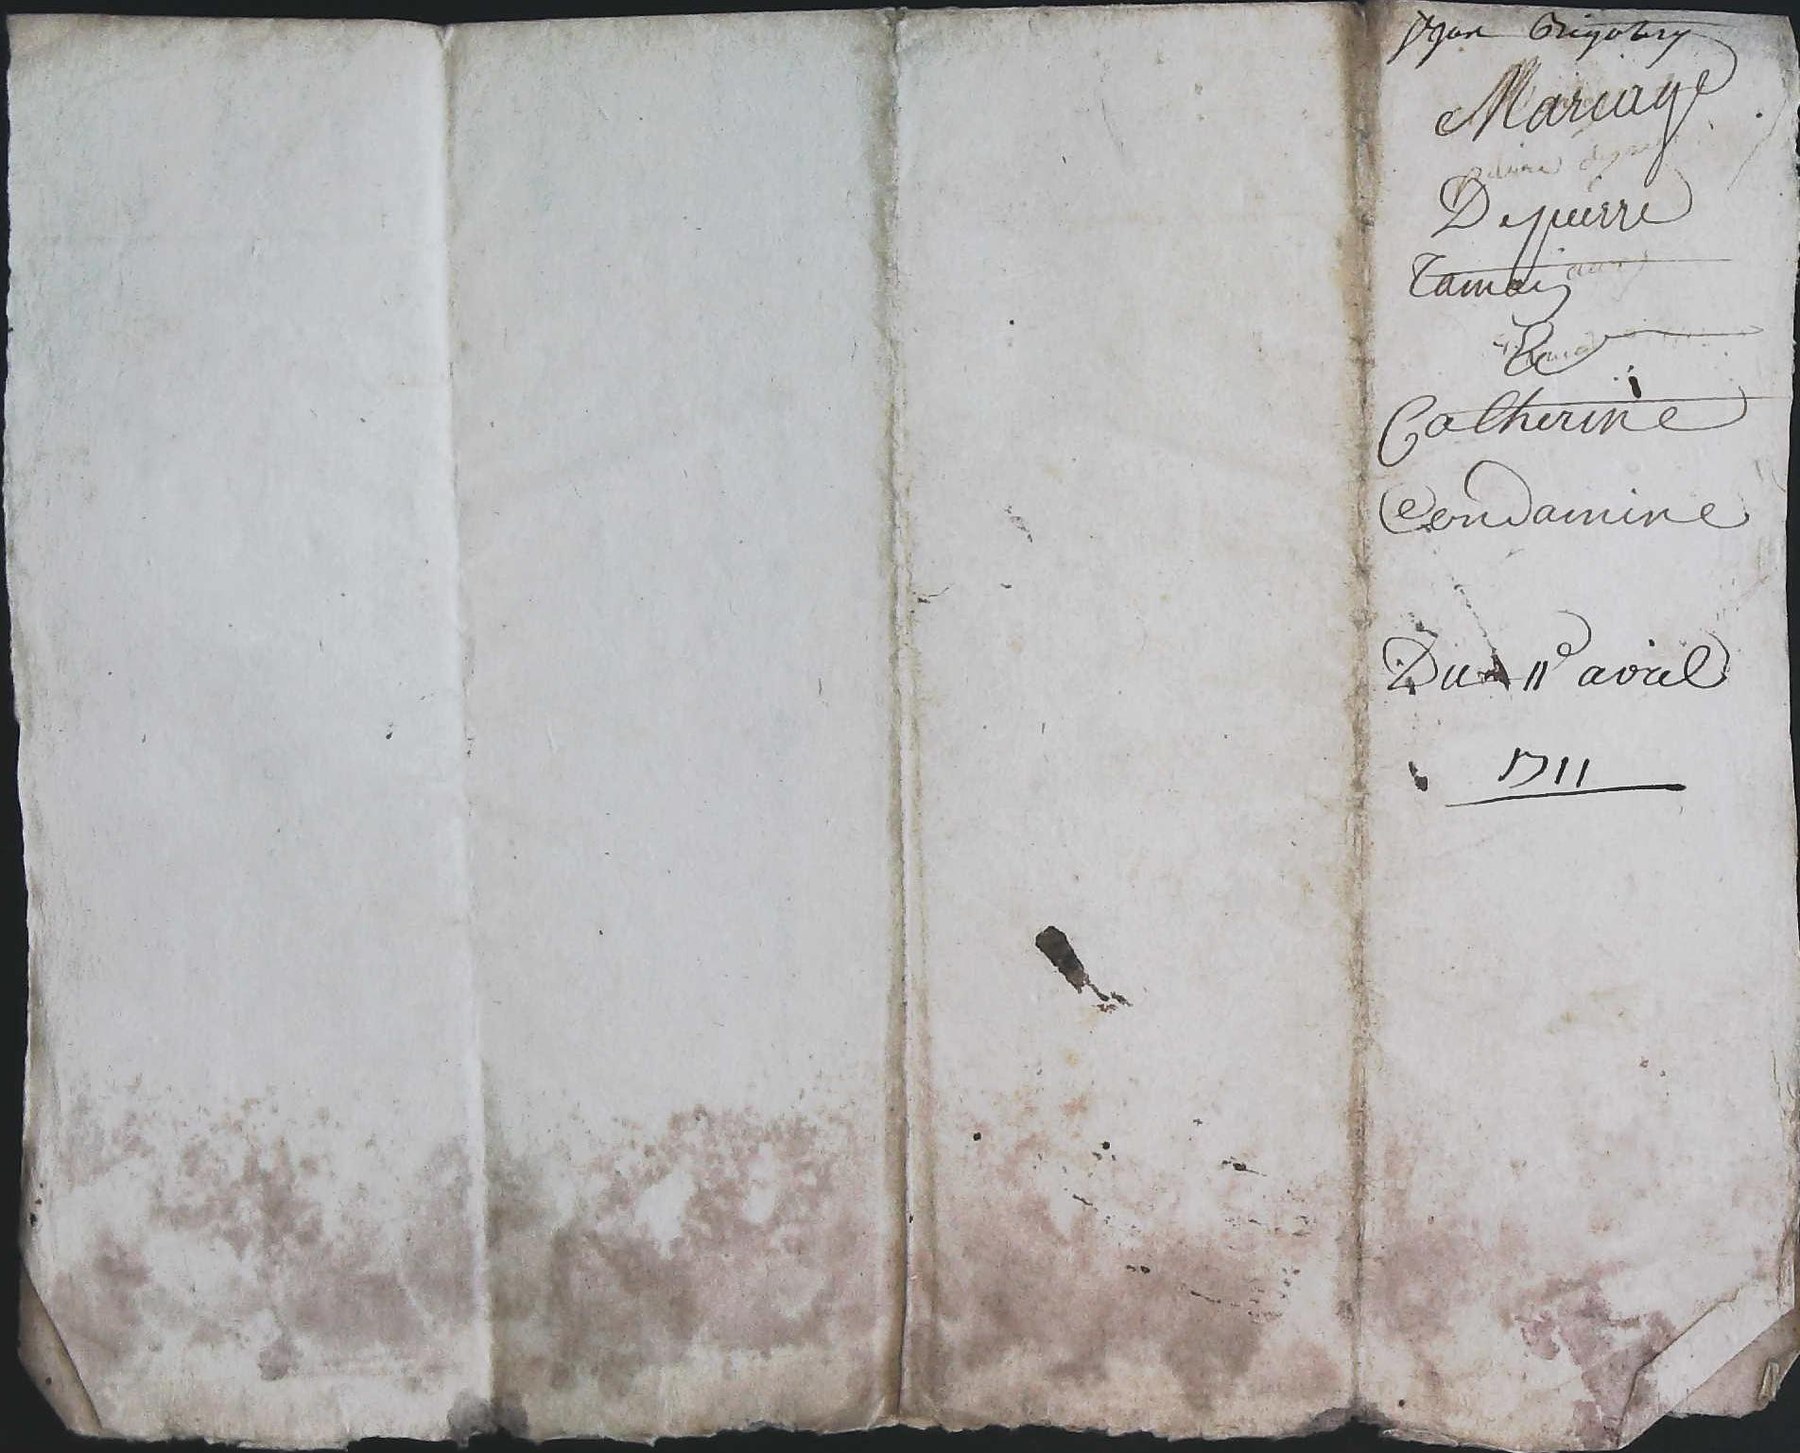 Mariage
De pierre
Tamai
Et
Catherine
Condamine
Du 11e avril
1711